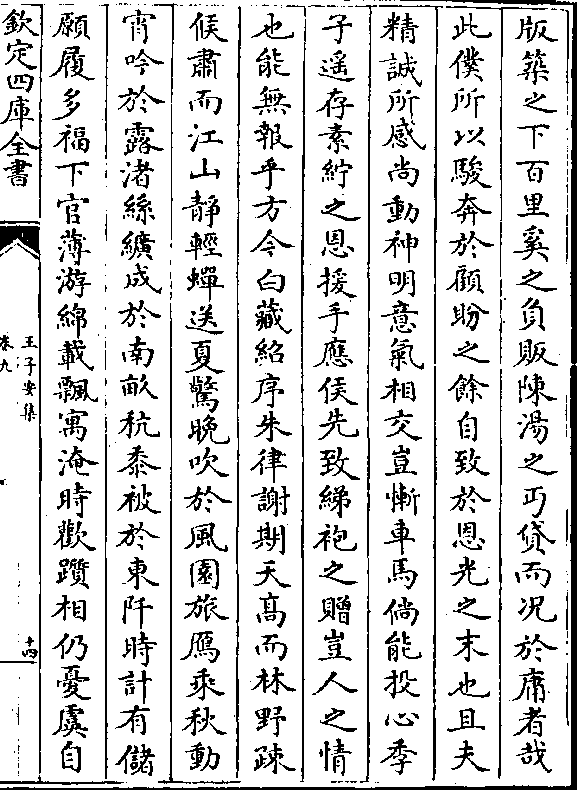 版築之下百里奚之負販陳湯之丐貸而况於庸者哉
此僕所以駿奔於顧盼之餘自致於恩光之末也且夫
精誠所感尚動神明意氣相交豈慚車馬倘能投心季
子遥存素紵之恩援手應侯先致綈袍之贈豈人之情
也能無報乎方今白藏紹序朱律謝期天高而林野疎
候肅而江山靜輕蟬送夏驚晚吹於風園旅鴈乘秋動
宵吟於露渚絲纊成於南畝秔黍被於東阡時計有儲
願履多福下官薄游綿載飄寓淹時歡躓相仍憂虞自
欽定四庫全書
王子安集
卷九
十四